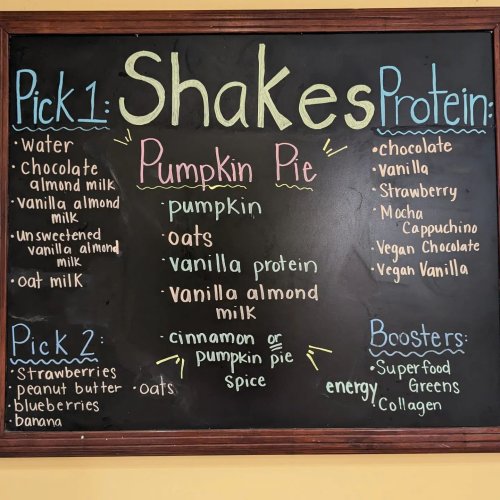 Shakes
Pick 1:
· Water
· Chocolate
almond milk
· vanilla almond
milk
· unsweetened
vanilla almond
milk
· oat milk
Pick 2:
· Strawberries
· peanut butter · oats
· blueberries
· banana
Pumpkin Pie
· pumpkin
· oats
· vanilla protein
· vanilla almond
milk
· cinnamon or
pumpkin pie
spice
Protein:
· chocolate
· vanilla
· Strawberry
· Mocha
Cappuchino
· Vegan Chocolate
· Vegan Vanilla
Boosters:
· Superfood
Greens
energy
· Collagen